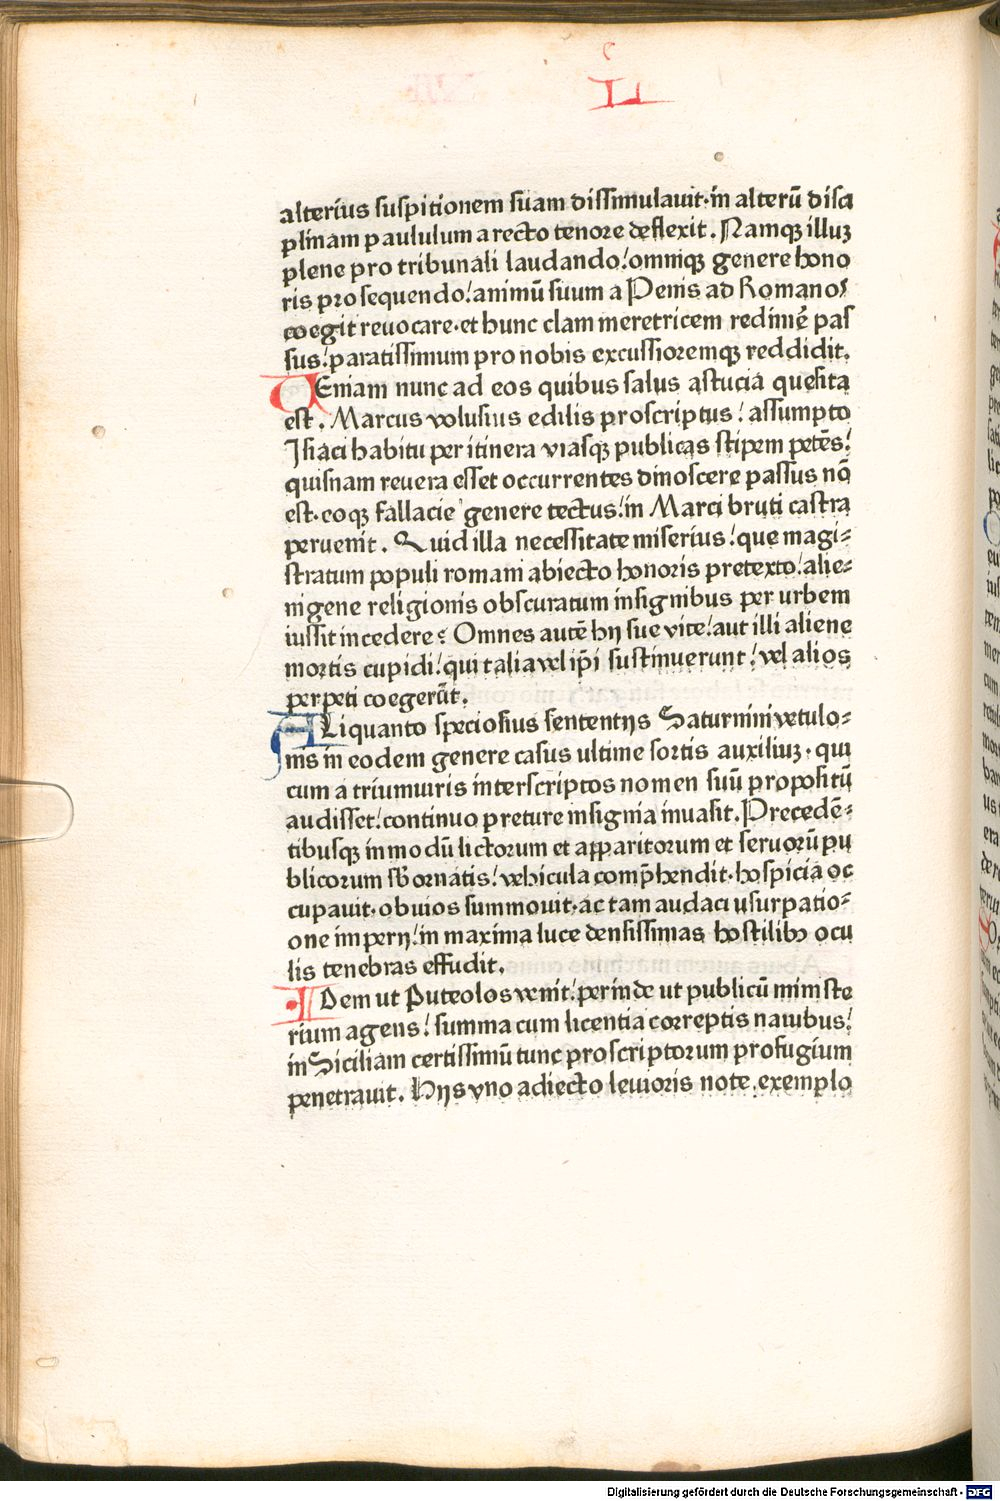 L
alterius suspitionem suam dissimulauit·in alterū disci
plinam paululum a recto tenore deflexit. Namqꝫ illuꝫ
plene pro tribunali laudando!omniqꝫ genere hono
ris prosequendo!animū suum a Penis ad Romanos
coegit reuocare·et hunc clam meretricem redimē pas
sus!paratissimum pro nobis excussioremqꝫ reddidit.
UEniam nunc ad eos quibus salus astucia quesita
est. Marcus volusius edilis proscriptus! assumpto
Isiaci habitu per itinera viasqꝫ publicas stipem petēs!
quisnam reuera esset occurrentes dinoscere passus nō
est·eoqꝫ fallacie genere tectus!in Marci bruti castra
peruenit. Quid illa necessitate miserius!que magi⸗
stratum populi romani abiecto honoris pretexto!alie⸗
nigene religionis obscuratum insignibus per urbem
iussit incedere? Omnes autē hij sue vite!aut illi aliene
mortis cupidi!qui talia vel ip̄i sustinuerunt!vel alios
perpeti coegerūt.
ALiquanto speciosius sententijs Saturnini vetulo⸗
nis in eodem genere casus ultime sortis auxiliuꝫ·qui
cum a triumuiris inter scriptos nomen suū propositū
audisset!continuo preture insignia inuasit. Precedē⸗
tibusqꝫ in modū lictorum et apparitorum et seruorū pu
blicorum sb̄ornatis!vehicula comp̄hendit·hospicia oc
cupauit·obuios summouit·ac tam audaci usurpatio⸗
one imperij!in maxima luce densissimas hostilibꝫ ocu
lis tenebras effudit.
IDem ut Puteolos venit!perinde ut publicū ministe
rium agens! summa cum licentia correptis nauibus!
in Siciliam certissimū tunc proscriptorum profugium
penetrauit. Hijs vno adiecto leuioris note exemplo
Digitalisierung gefördert durch die Deutsche Forschungsgemeinschaft - DFG